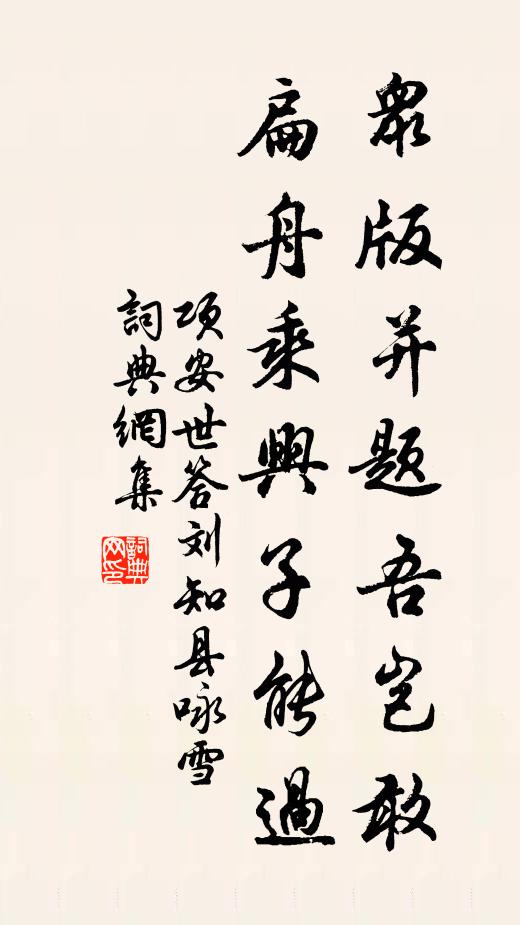 眾版并题吾岂敢
扁舟乘興子能過
项安世答刘知县咏雪
詞典網集
詞典网印